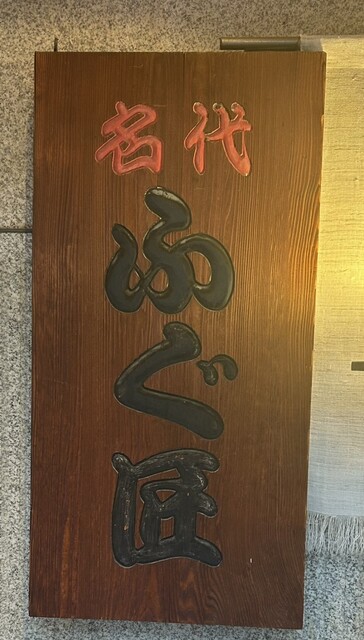 名代
ふぐ匠